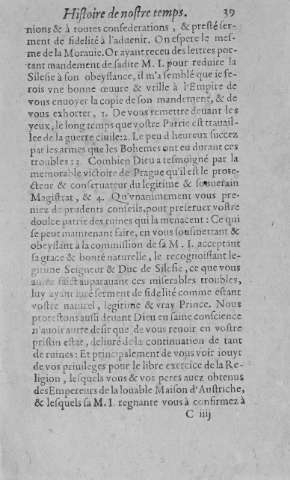 Histoire de nostre temps. 39
nions & à toutes confederations, & presté ser-
ment de fidelité à l'aduenir. On espere le mes-
me de la Morauie. Or ayant receu des lettres por-
tant mandement de sadite M. I. pour reduire la
Silesie à son obeyssance, il m'a semblé que ie fe-
rois vne bonne œuure & vtille à l'Empire de
vous enuoyer la copie de son mandement, & de
vous exhorter, 1. De vous remettre deuant les
yeux, le long temps que vostre Patrie est trauail-
lee de la guerre ciuile: 2. Le peu d'heureux succez
par les armes que les Bohemes ont eu durant ces
troubles: 3. Combien Dieu a tesmoigné par la
memorable victoire de Prague qu'il est le prote-
cteur & conseruateur du legitime & souuerain
Magistrat, & 4. Qu'vnanimement vous pre-
niez de prudents conseils, pour preseruer vostre
doulce patrie des ruines qui la menacent: Ce qui
se peut maintenant faire, en vous soubmettant &
obeyssant à la commission de sa M. I. acceptant
sa grace & bonté naturelle, le recognoissant le-
gitime Seigneur & Duc de Silesie, ce que vous
auez faict auparauant ces miserables troubles,
luy ayant iuré serment de fidelité comme estant
vostre naturel, legitime & vray Prince. Nous
protestons aussi deuant Dieu en saine conscience
n'auoir autre desir que de vous reuoir en vostre
pristin estat, deliuré de la continuation de tant
de ruines: Et principalement de vous voir iouyr
de vos priuileges pour le libre exercice de la Re-
ligion, lesquels vous & vos peres auez obtenus
des Empereurs de la louable Maison d'Austriche,
& lesquels sa M. I. regnante vous à confirmez à
C iiij